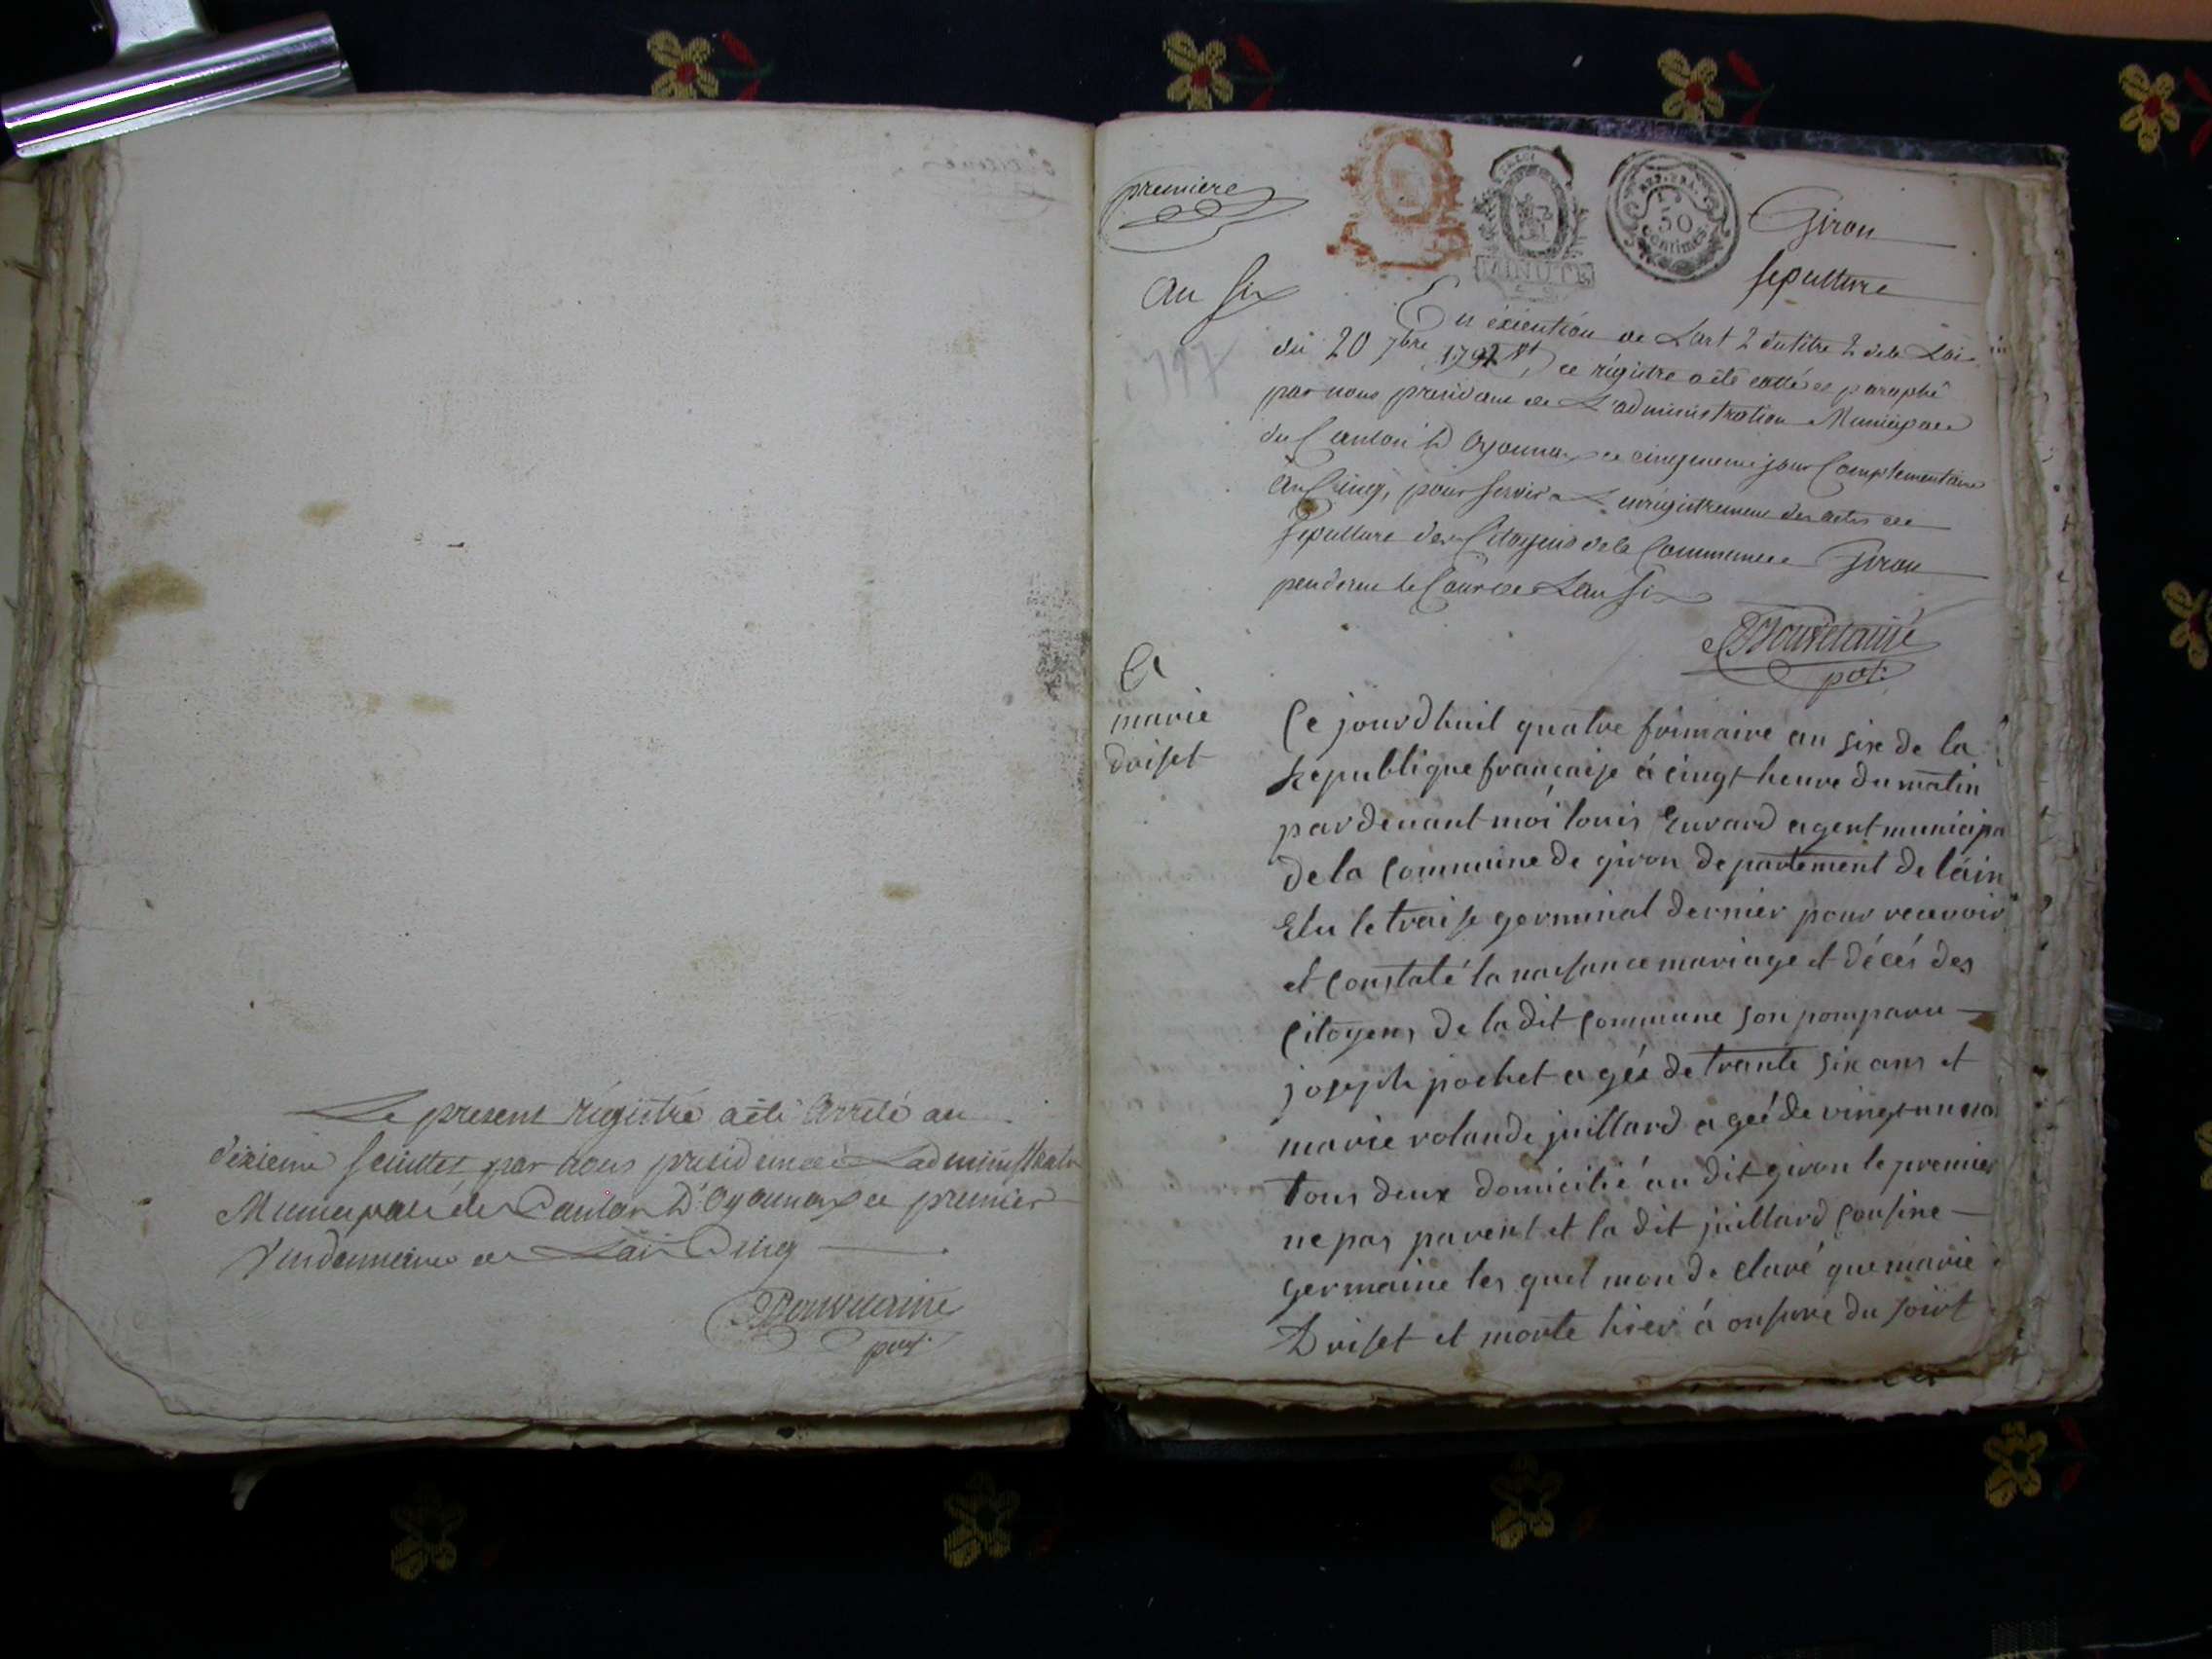 Le present régistre a èté Arrété au
dixieme feuillet, par nous president de L'administration
Municipale du Canton D'Oyonnax ce premier
Vendemiaire de L'an Cinq
pnt.
premiere
MINUTE
REP. FRA.
50
centimes
Giron
sepulture
an six
1797
En éxécution de L'art 2 du titre 2 de la Loi
du 20 7bre 1792 st, ce régistre a été cotté et paraphé
par nous president de L'administration Municipale
du Canton D'Oyonnax ce cinquieme jour Complementaire
An Cinq, pour servir a L'enrégistrement des actes de
sepulture des Citoyens de la Commune de Giron
pendant le Cour de L'an six
pnt.
marie
driset
Ce jourdhuil quatre frimaire an six de la
Republique française á cinqt heure du matin
pardevant moi louis Euvrard agent municipa
de la commune de giron departement de l'áin
Elu le traise germinal dernier pour recevoir
et constaté la naisance mariage et décés des
citoyens de la dit commune son pomparu
joseph pochet agés de trante six ans et
marie rolande juillard agée de vingt un ans
tous deux domicilié au dit giron le premier
ne pas parent et la dit juillard cousine
germaine les quel mon de claré que marie
Driset et morte hier á onsure du soirt